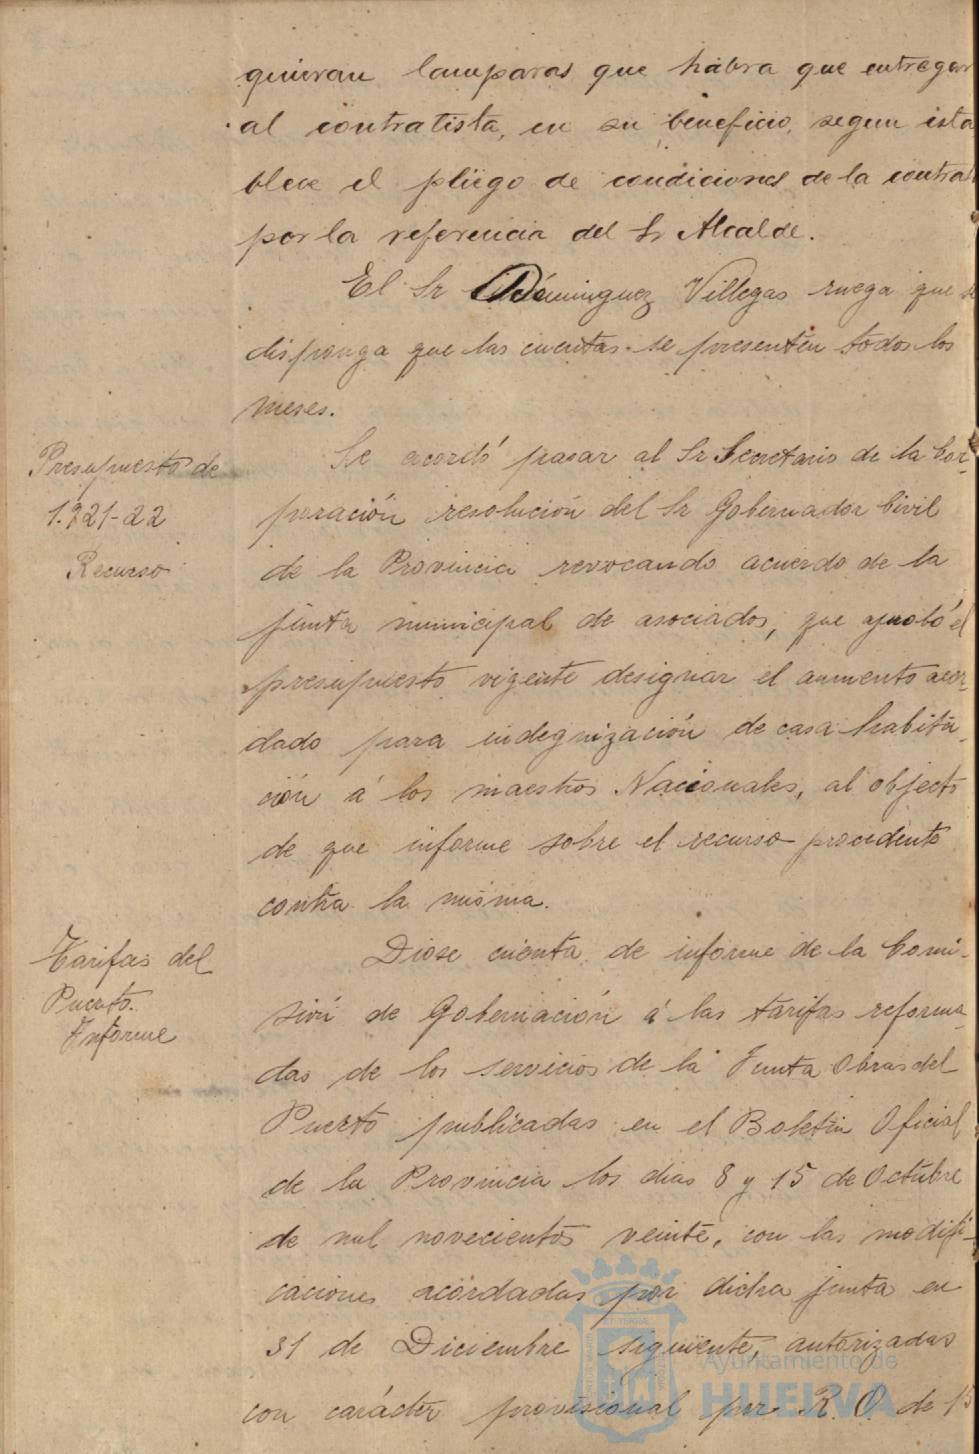 quieran lamparas que habra que entregar
al contratista, en su beneficio, segun esta
blece el pliego de condiciones de la contra
por la referencia del Sr Alcalde.
El Sr Dominguez Villegas ruega que se
disponga que las cuentas se presenten todos los
meses.
Presupuesto de
1.921-22
Recurso
Se acordó pasar al Sr Secretario de la Cor-
poración resolución del Sr Gobernador Civil
de la Provincia revocando acuerdo de la
junta municipal de asociados, que aprobó el
presupuesto vigente designar el aumento acor-
dado para indegnización de casa habita-
ción á los maestros Nacionales, al objecto
de que informe sobre el recurso procedente
contra la misma.
Tarifas del
Puerto.
Informe
Diose cuenta de informe de la Comi-
sión de Gobernación á las tarifas reforma-
das de los servicios de la Junta Obras del
Puerto publicadas en el Boletin Oficial
de la Provincia los dias 8 y 15 de Octubre
de mil novecientos veinte, con las modifi-
caciones acordadas por dicha junta en
31 de Diciembre siguiente, autorizadas
con carácter provisional por R. O. de 15
Ayuntamiento de
HUELVA